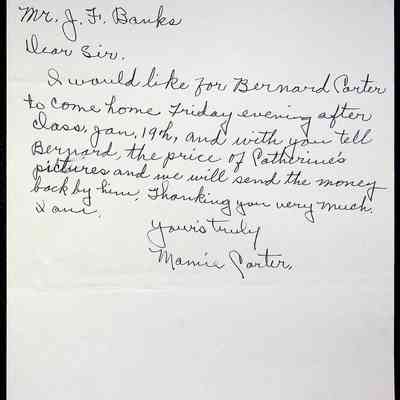 Mr. J. F. Banks
Dear Sir.
I would like for Bernard Carter
to come home Friday evening after
class, Jan, 19th, and with you tell
Bernard, the price of Catherine's
pictures and we will send the money
back by him. Thanking you very much.
I am.
Yours truly
Mamie Carter.